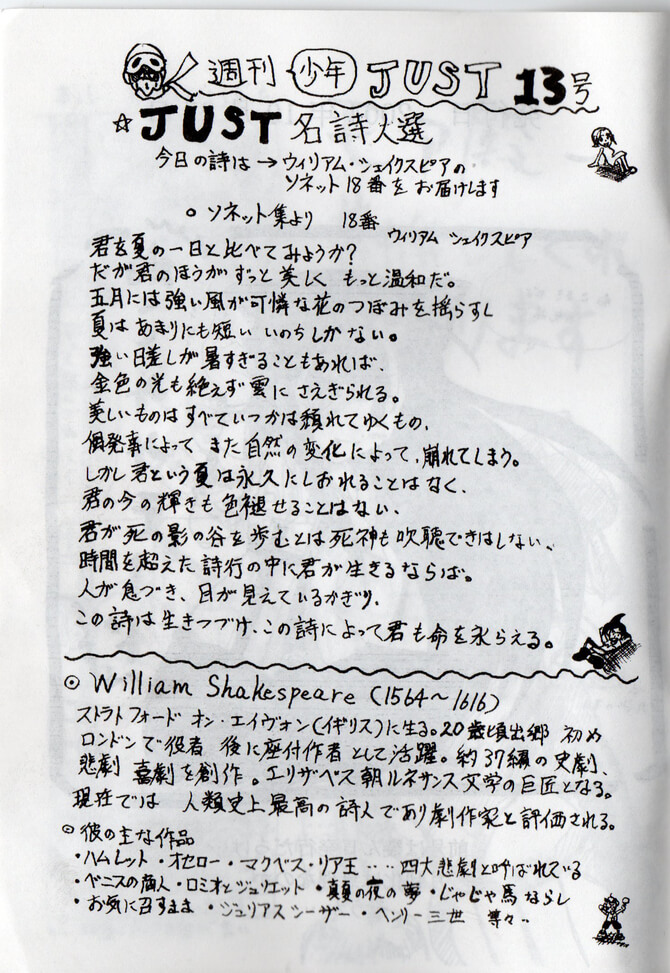 週刊 少年 JUST 13号
☆JUST 名詩大選
今日の詩は→ウィリアム・シェイクスピアの
ソネット18番をお届けします
○ ソネット集より 18番
ウィリアム シェイクスピア
君を夏の一日と比べてみようか?
だが君のほうがずっと美しく もっと温和だ。
五月には強い風が可憐な花のつぼみを揺らすし
夏はあまりにも短い いのちしかない。
強い日差しが暑すぎることもあれば、
金色の光も絶えず雲に さえぎられる。
美しいものは すべていつかは頽れてゆくもの、
偶発事によって また自然の変化によって、崩れてしまう。
しかし君という夏は永久にしおれることはなく、
君の今の輝きも色褪せることはない、
君が死の影の谷を歩むとは死神も吹聴できはしない、
時間を超えた詩行の中に君が生きるならば。
人が息づき、目が見えているかぎり、
この詩は生きつづけ、この詩によって君も命を永らえる。
◎ William Shakespeare (1564〜1616)
ストラトフォード オン・エイヴォン(イギリス)に生る。20歳頃出郷 初め
ロンドンで役者 後に座付作者として活躍。約37編の史劇、
悲劇 喜劇を創作。エリザベス朝ルネサンス文学の巨匠となる。
現在では 人類史上最高の詩人であり劇作家と評価される。
◎ 彼の主な作品
・ハムレット・オセロー・マクベス・リア王‥‥四大悲劇と呼ばれている
・ベニスの商人・ロミオとジュリエット・真夏の夜の夢・じゃじゃ馬ならし
・お気に召すまま・ジュリアスシーザー・ヘンリー三世 等々‥